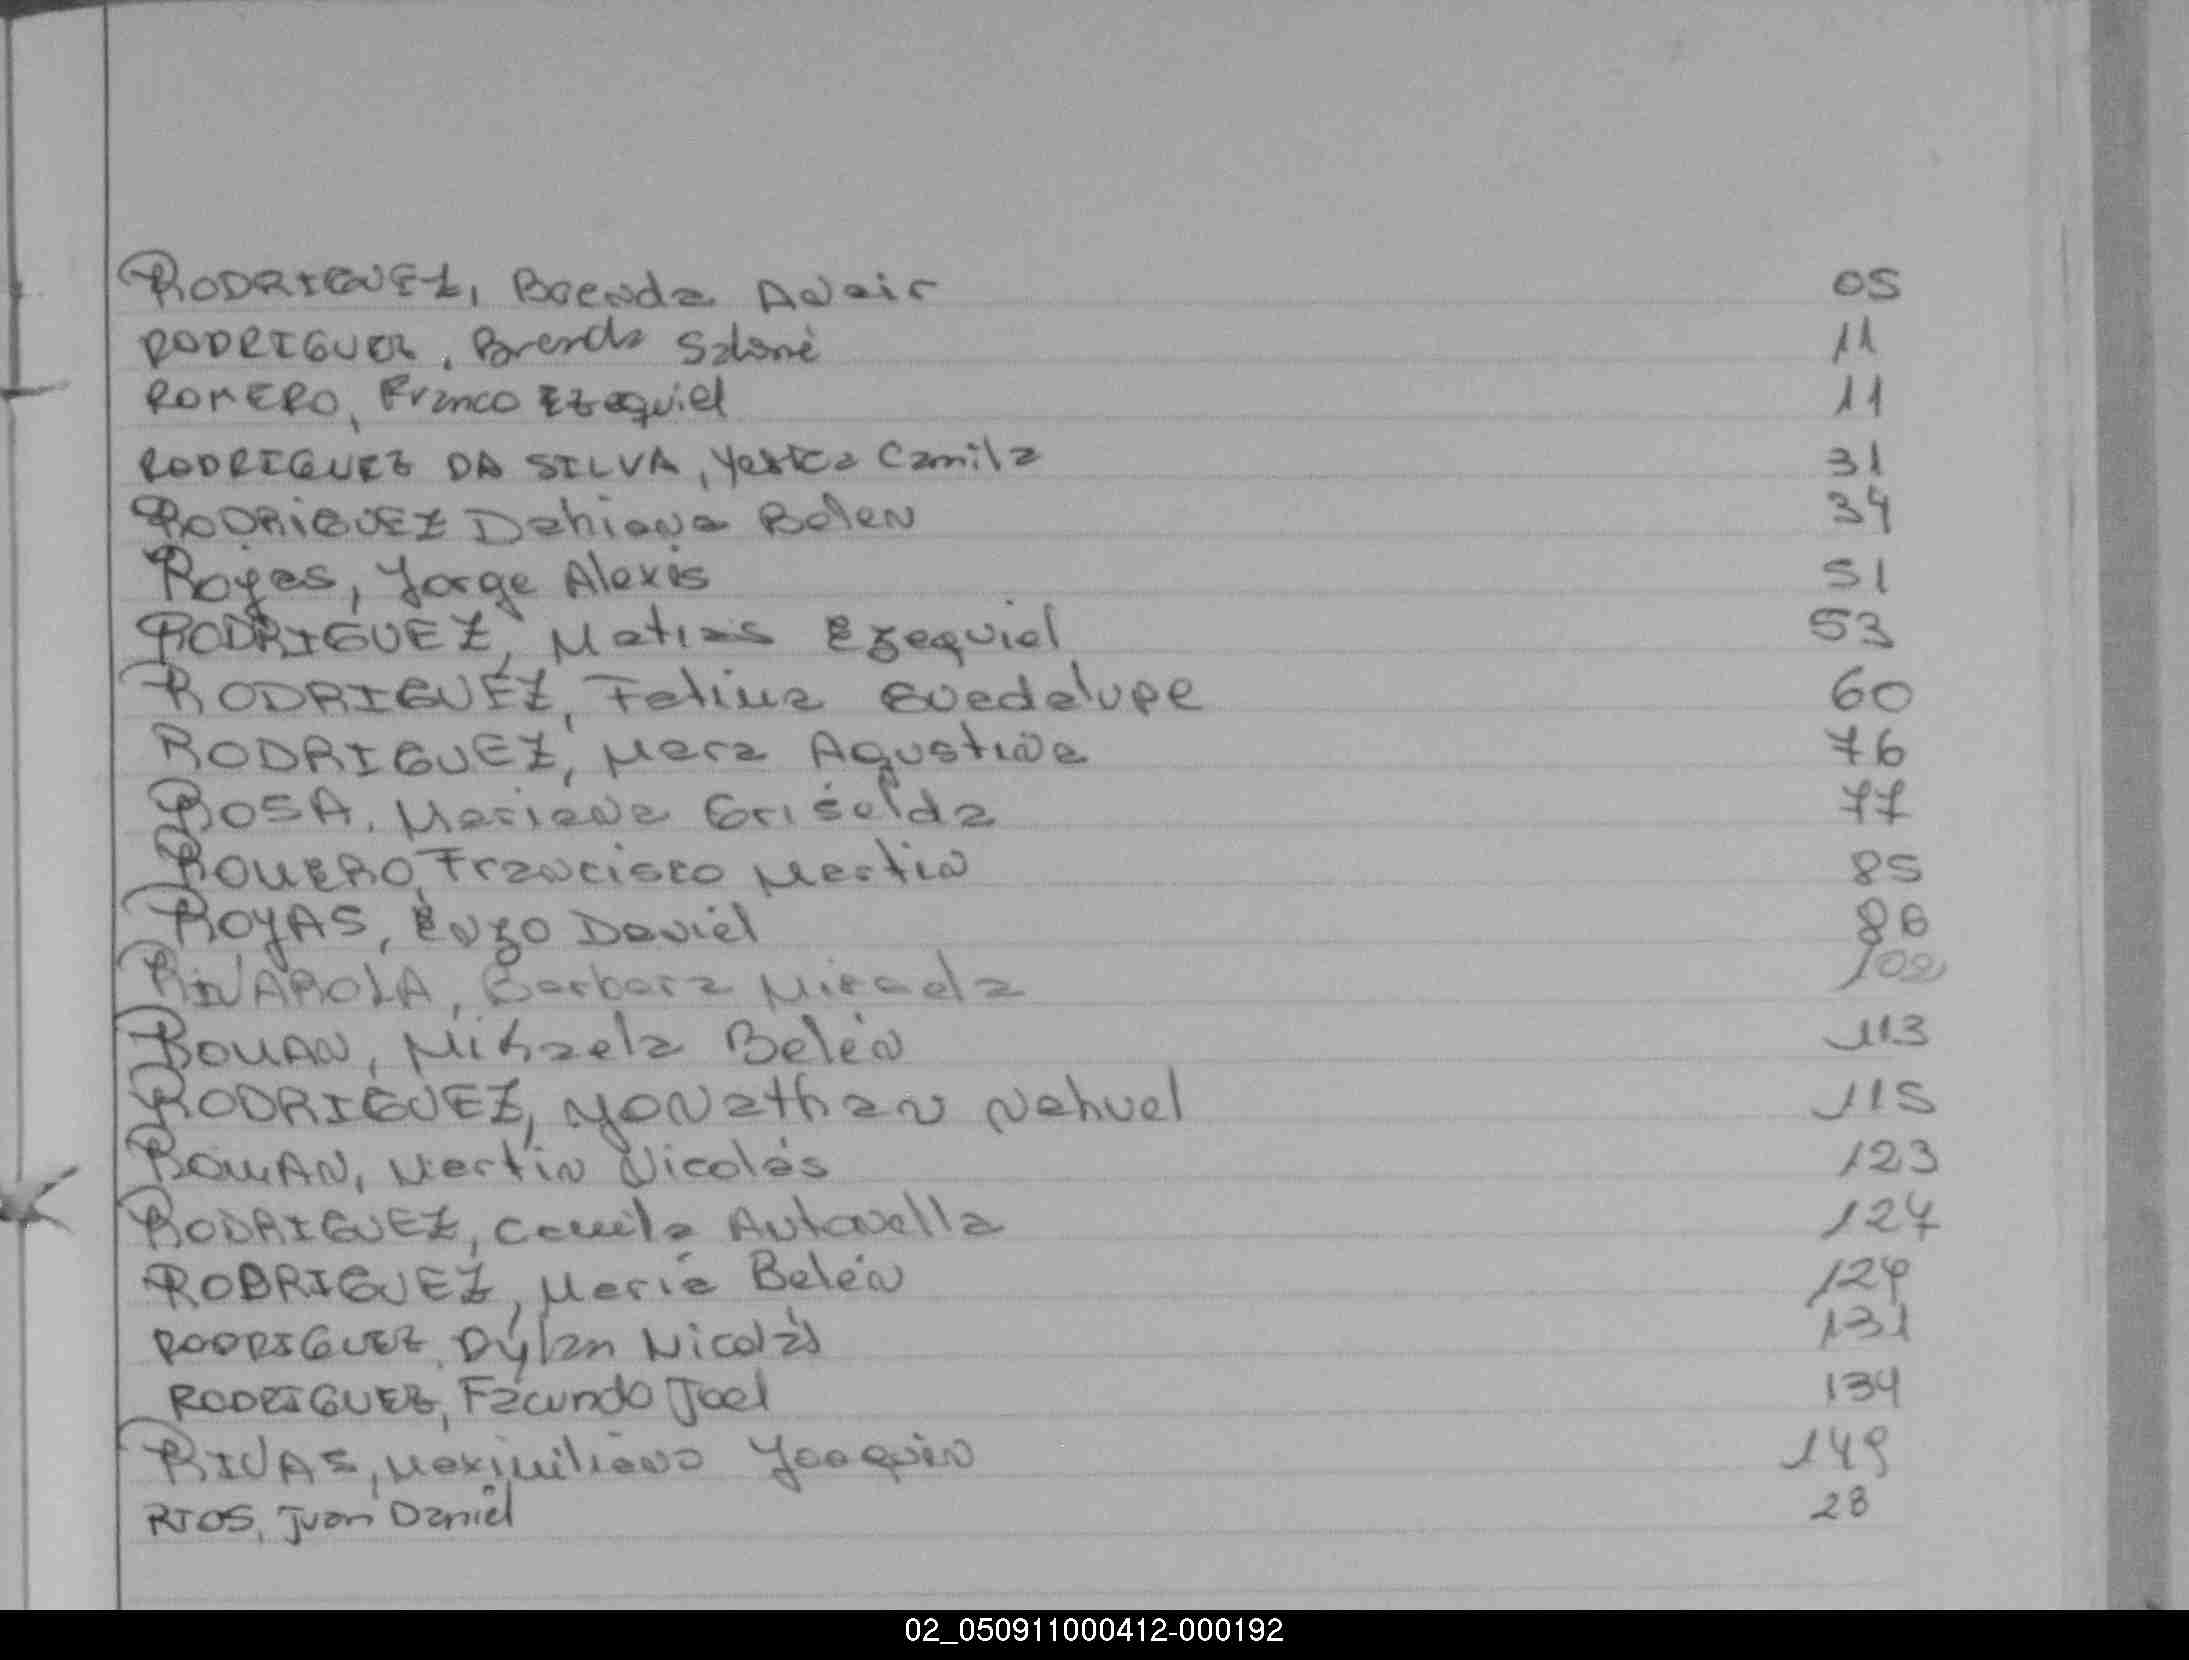 RODRIGUEZ, Brenda Anair 05
RODRIGUEZ, Brenda Salomé 11
ROMERO, Franco Ezequiel 11
RODRIGUEZ DA SILVA, Yesica Camila 31
RODRIGUEZ Dahiana Belen 34
Rojas, Jorge Alexis 51
RODRIGUEZ, Matias Ezequiel 53
RODRIGUEZ, Fatima Guadalupe 60
RODRIGUEZ, Mara Agustina 76
ROSA, Mariana Griselda 77
ROMERO, Francisco Martin 85
ROJAS, Enzo Daniel 86
RIVAROLA, Barbara Micaela 102
ROMAN, Mikaela Belén 113
RODRIGUEZ, Yonathan Nahuel 115
ROMAN, Martín Nicolás 123
RODRIGUEZ, Camila Antonella 124
RODRIGUEZ, María Belén 129
RODRIGUEZ, Dylan Nicolás 131
RODRIGUEZ, Facundo Joel 134
RIVAS, Maximiliano Joaquin 149
RIOS, Juan Daniel 28
02_050911000412-000192